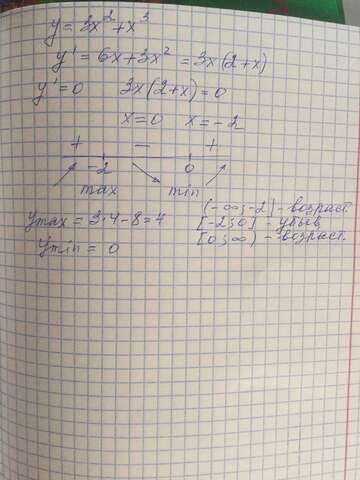 y = 3x² + x³
y' = 6x + 3x² = 3x(2+x)
y' = 0 3x(2+x) = 0
x = 0 x = -2
+ − +
-2 0
max min
ymax = 3·4 - 8 = 4
ymin = 0
(-∞; -2] - возраст.
[-2; 0] - убыв.
[0; ∞) - возраст.